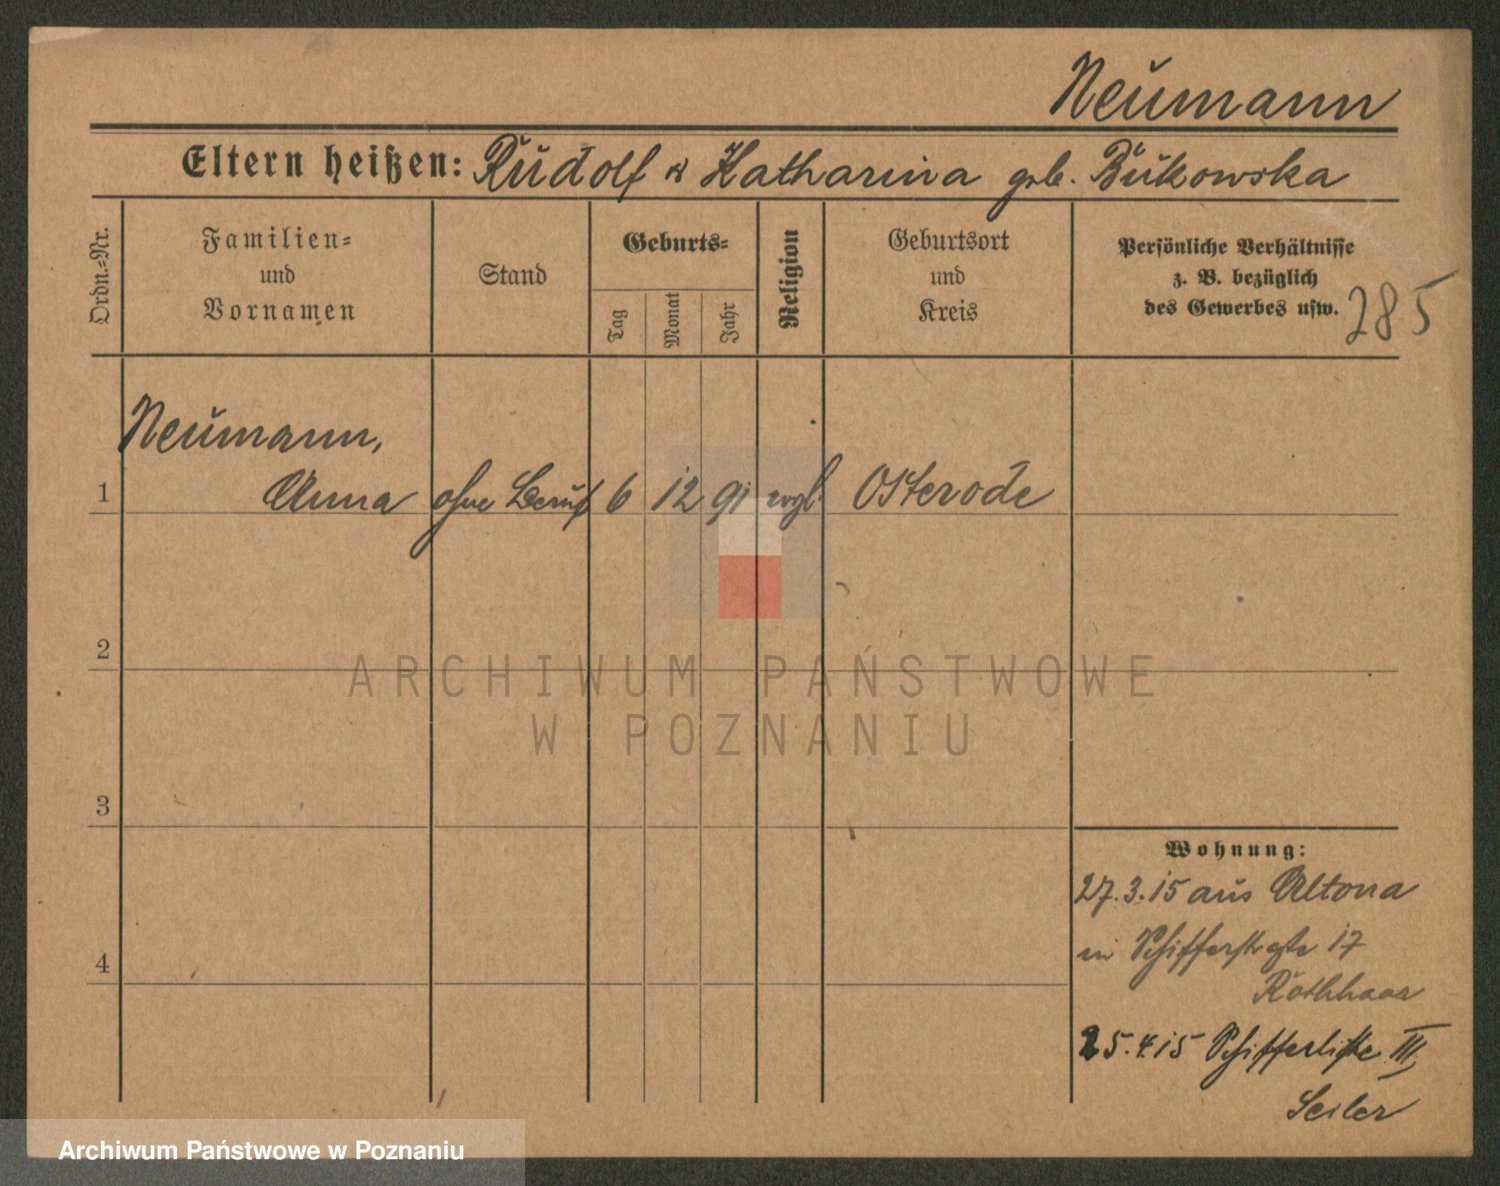 Neumann
Eltern heißen: Rudolf u Katharina geb. Bukowska
Ordn.=Nr.
Familien=
und
Vornamen
Stand
Geburts=
Tag
Monat
Jahr
Religion
Geburtsort
und
Kreis
Persönliche Verhältnisse
z. B. bezüglich
des Gewerbes usw.
285
Neumann,
1 Anna ohne Beruf 6 12 91 evgl. Osterode
2
3
4
ARCHIWUM PAŃSTWOWE
W POZNANIU
Wohnung:
27.3.15 aus Altona
in 17
Rothhaar
25.4.15 III
Seiler
Archiwum Państwowe w Poznaniu